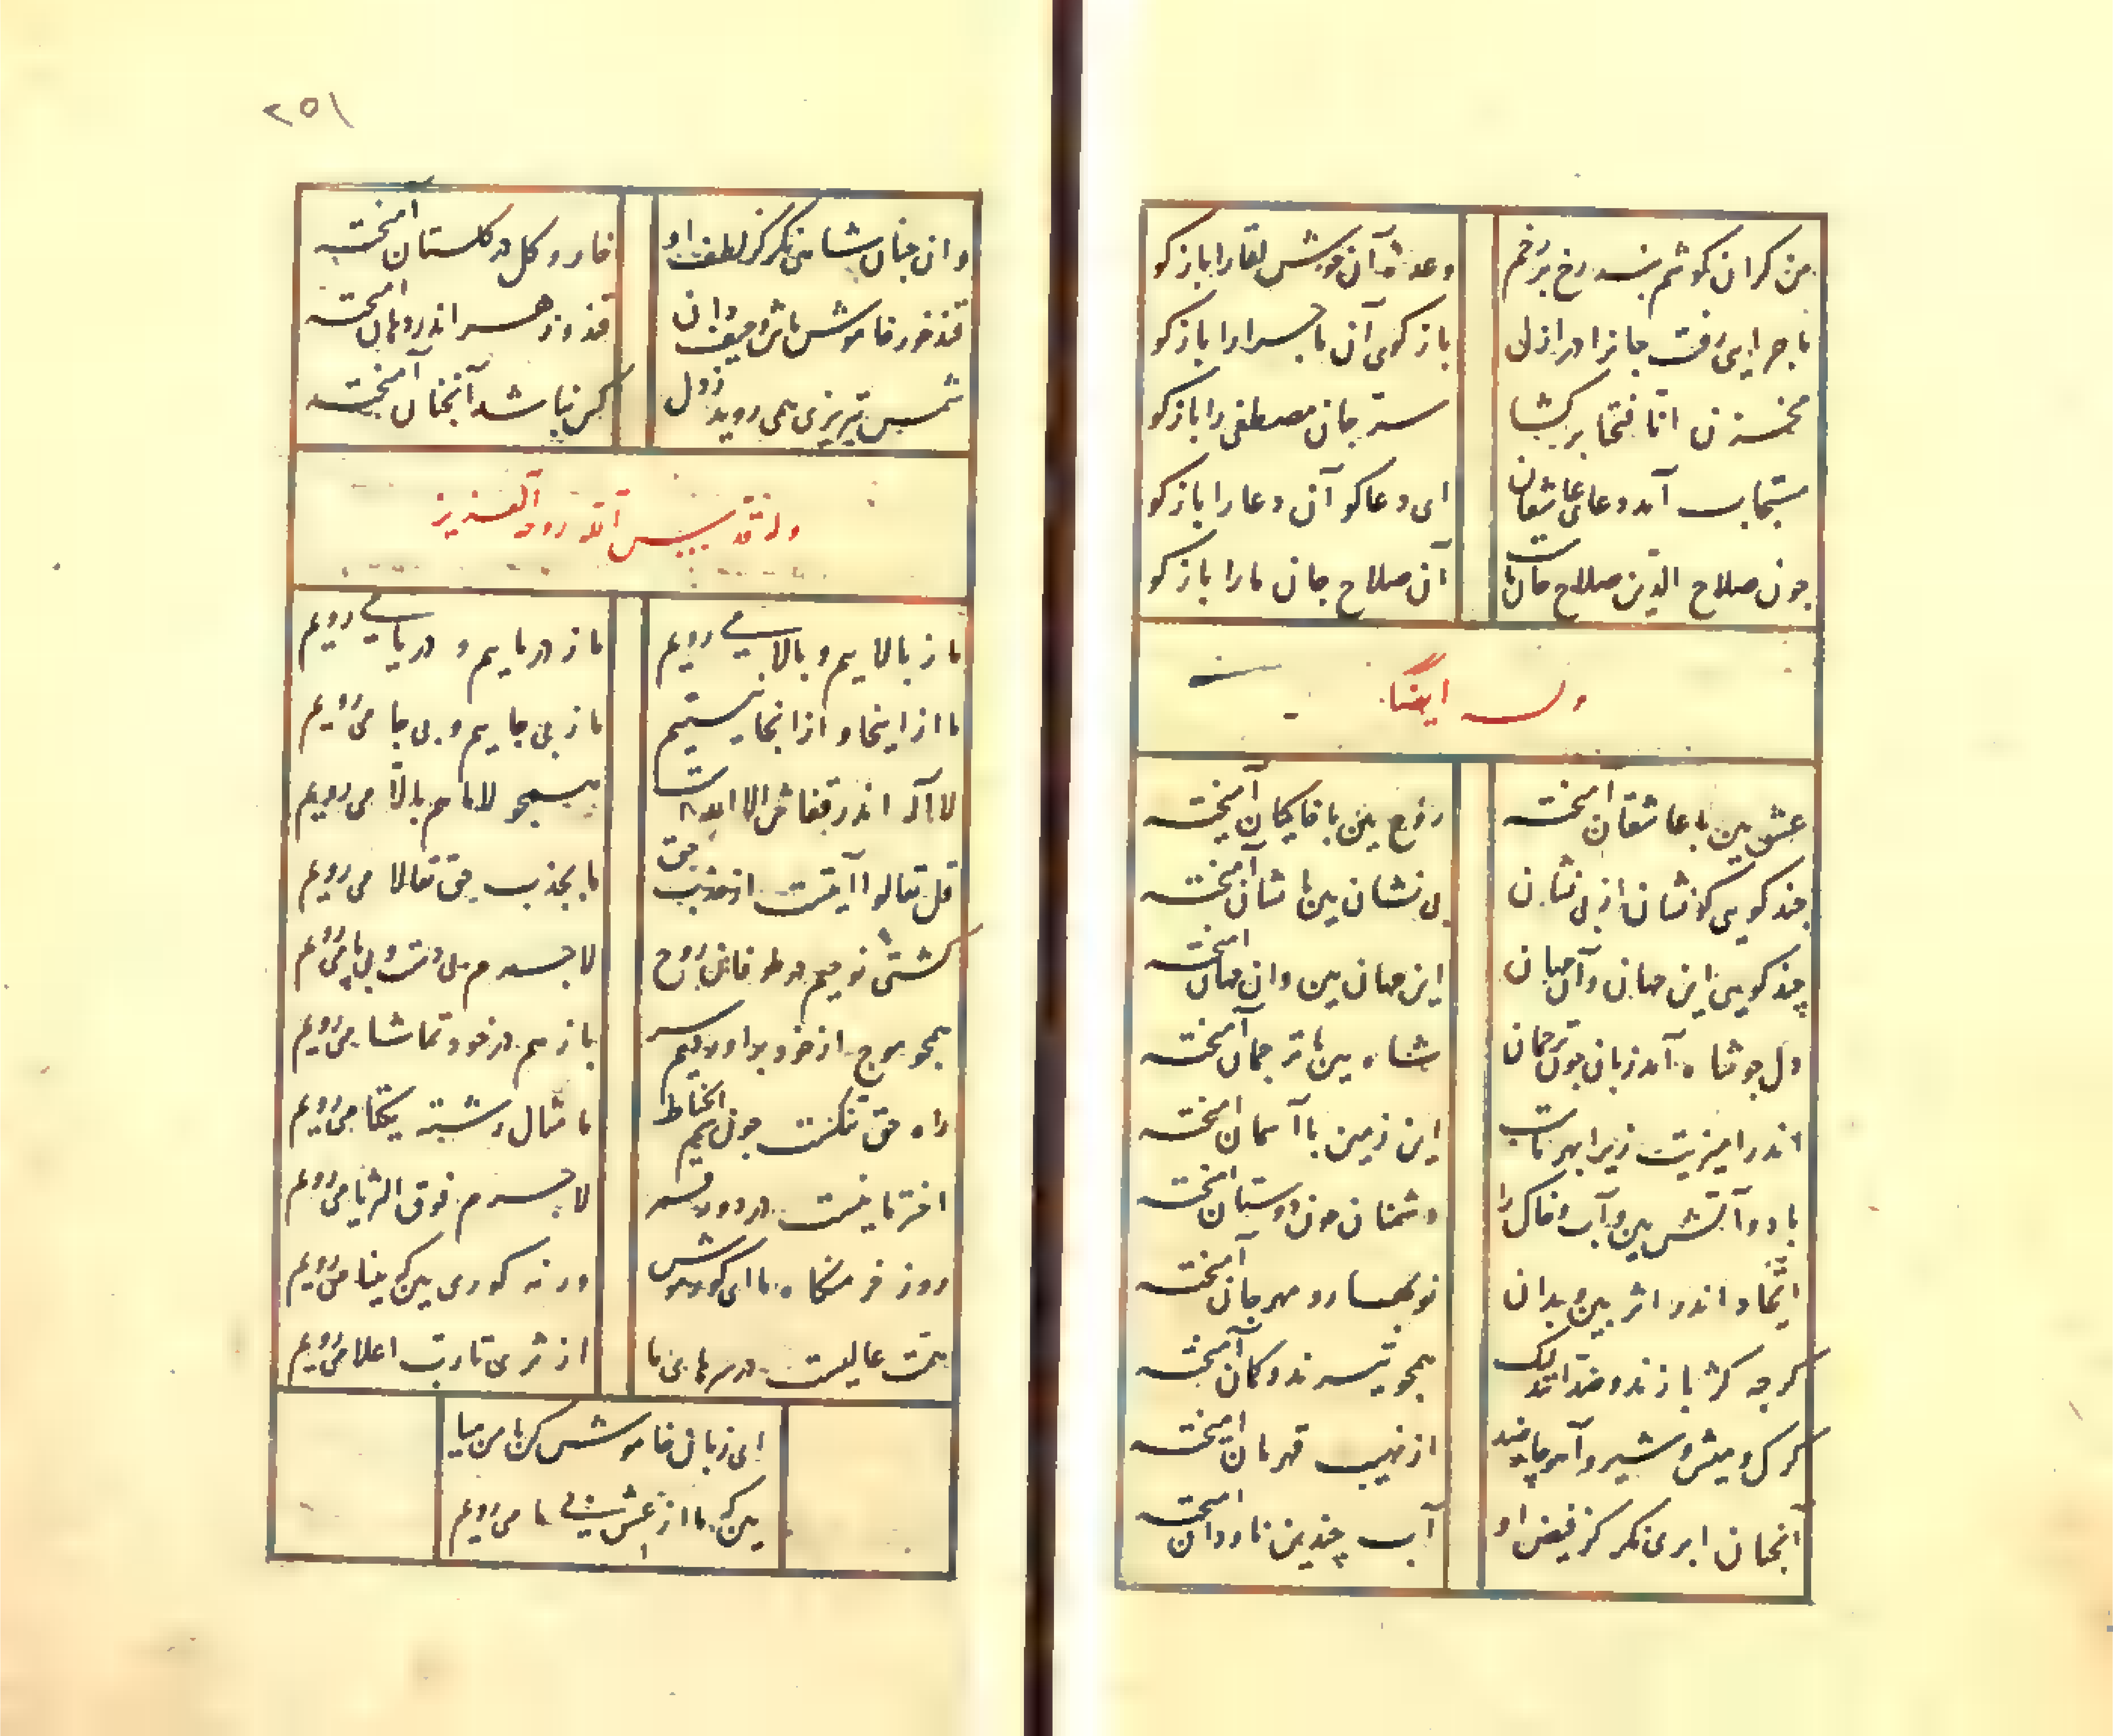 من كران كوشم بنه رخ بر رخم وعدهٔ آن خوش لقا را باز كو
ماجرایی رفت جانرا در ازل باز كوی آن ماجرا را باز كو
مخزن انّا فتحنا بر كشا سرّ جان مصطفی را باز كو
مستجاب آمد دعای عاشقان ای دعا كو آن دعا را باز كو
چون صلاح الدّین صلاح جان ماست آن صلاح جان ما را باز كو
وله ایضًا
عشق بین با عاشقان آمیخته روح بین با خاكیان آمیخته
چند كویی كو نشان از بی نشان بی نشان بین با نشان آمیخته
چند كویی این جهان و آن جهان این جهان بین وان جهان آمیخته
دل چو شاه آمد زبان چون ترجمان شاه بین با ترجمان آمیخته
اندر امیزیت زیرا بهر ماست این زمین با آسمان آمیخته
باد و آتش بین و آب و خاك را دشمنان چون دوستان آمیخته
اتّحاد اندر اثر بین و بدان نوبهار و مهرجان آمیخته
كرچه كژ بازند و ضدّانند لیك همچو تیرند و كمان آمیخته
كرك و میش و شیر و آهو چار ضد از نهیب قهرمان آمیخته
آنچنان ابری نكر كز فیض او آب چندین ناودان آمیخته
٢٥١
وان چنان شاهی نكر كز لطف او خار و كل در كلستان آمیخته
قند خور خاموش باش و حیف دان قند و زهر اندر دهان آمیخته
شمس تبریزی همی روید ز دل كس نباشد آنچنان آمیخته
وله قدّس الله روحه العزیز
ما ز بالاییم و بالا می رویم ما ز دریاییم و دریا می رویم
ما از اینجا و از انجا نیستیم ما ز بی جاییم و بی جا می رویم
لا اله اندر قفاش الا الله است همچو لا ما هم بالّا می رویم
قل تعالوا آیتست از جذب حق ما بجذب حق تعالا می رویم
كشتی نوحیم در طوفان روح لاجرم بی دست و بی پا می رویم
همچو موج از خود براوردیم سر باز هم در خود تماشا می رویم
راه حق تنكست چون سمّ الخیاط ما مثال رشته یكتا می رویم
اختر ما نیست در دور قمر لاجرم فوق الثریا می رویم
روز خرمنكاه ما ای كور موش ورنه كوری بین كه بینا می رویم
همّت عالیست در سرهای ما از ثری تا ربّ اعلا می رویم
ای زبان خاموش كن با من میا
بین كه ما از عشق بی ما می رویم